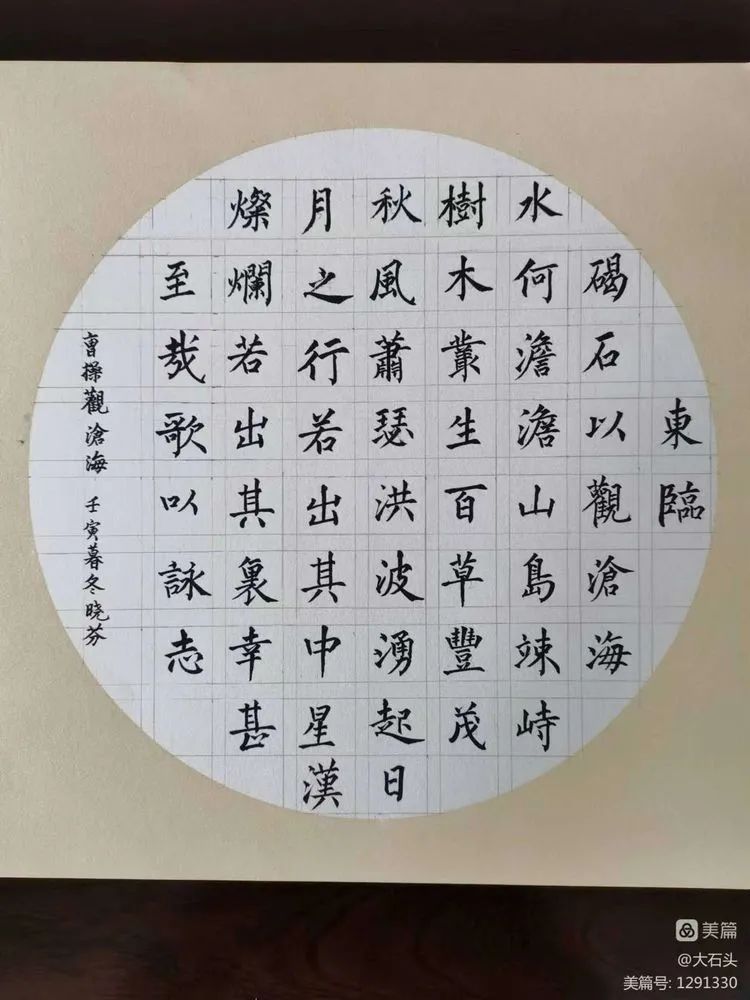 東臨
碣石以觀滄海
水何澹澹山島竦峙
樹木叢生百草豐茂
秋風蕭瑟洪波湧起日
月之行若出其中星漢
燦爛若出其裏幸甚
至哉歌以詠志
曹操觀滄海 壬寅暮冬曉芬
美篇
@大石头
美篇号: 1291330